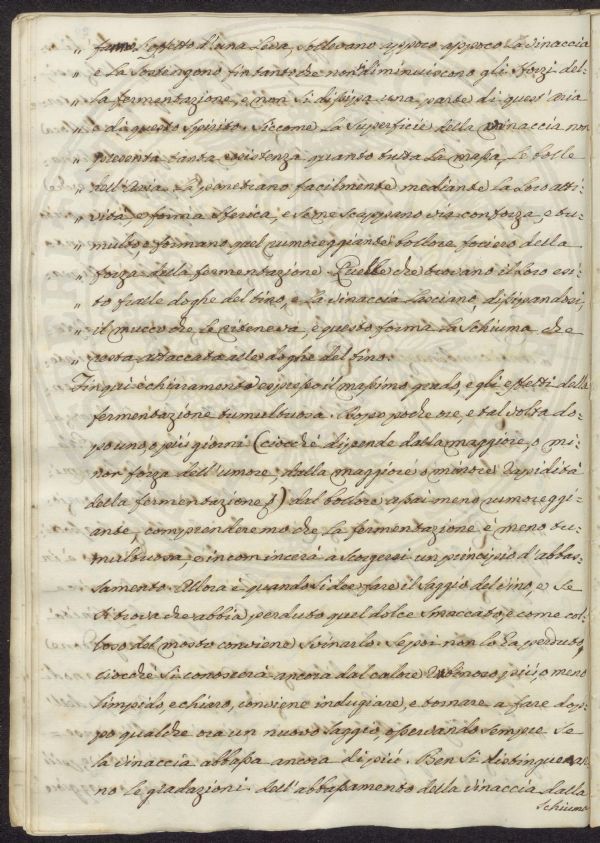 „ fanno l'effetto d'una Leva, sollevano appoco appoco La vinaccia
„ e La Sostengono fintantochè non diminuiscono gli sforzi del-
„ la fermentazione, e non si dissipa una parte di quest'aria
„ o di questo Spirito. Siccome La Superficie della vinaccia non
„ presenta tanta resistenza quanto tutta La massa, Le bolle
„ dell'Aria La penetrano facilmente mediante La Loro atti-
„ vità, e forma sferica, e se ne scappano via con forza, e tu-
„ multo, e formano quel rumoreggiante bollore foriero della
„ forza della fermentazione. Quelle che trovano il Loro esi-
„ to fralle doghe del tino, e La vinaccia Lasciano, dissipandosi,
„ il mucco che Le riteneva, e questo forma La Schiuma che
„ resta attaccata alle doghe del tino.
Fin qui è chiaramente espresso il massimo grado, e gli effetti della
fermentazione tumultuosa. Dopo poche ore, e tal volta do-
po uno, o più giorni (ciocchè dipende dalla maggiore, o mi-
nor forza dell'umore, dalla maggiore o minore rapidità
della fermentazione) dal bollore assai meno rumoreggi-
ante, comprenderemo che La fermentazione è meno tu-
multuosa, e incomincerà a scorgersi un principio d'abbas-
samento. Allora è quando si dee fare il Saggio del vino, e se
si trova che abbia perduto quel dolce smaccato, e come cal-
loso del mosto conviene svinarlo. Se poi non lo ha perduto,
ciocchè si conoscerà ancora dal colore vinoso, più, o meno
limpido, e chiaro, conviene indugiare, e tornare a fare dop-
po qualche ora un nuovo Saggio, osservando sempre se
la vinaccia abbassa ancora di più. Ben si distingueran-
no le gradazioni dell'abbassamento della vinaccia dalla
Schiuma